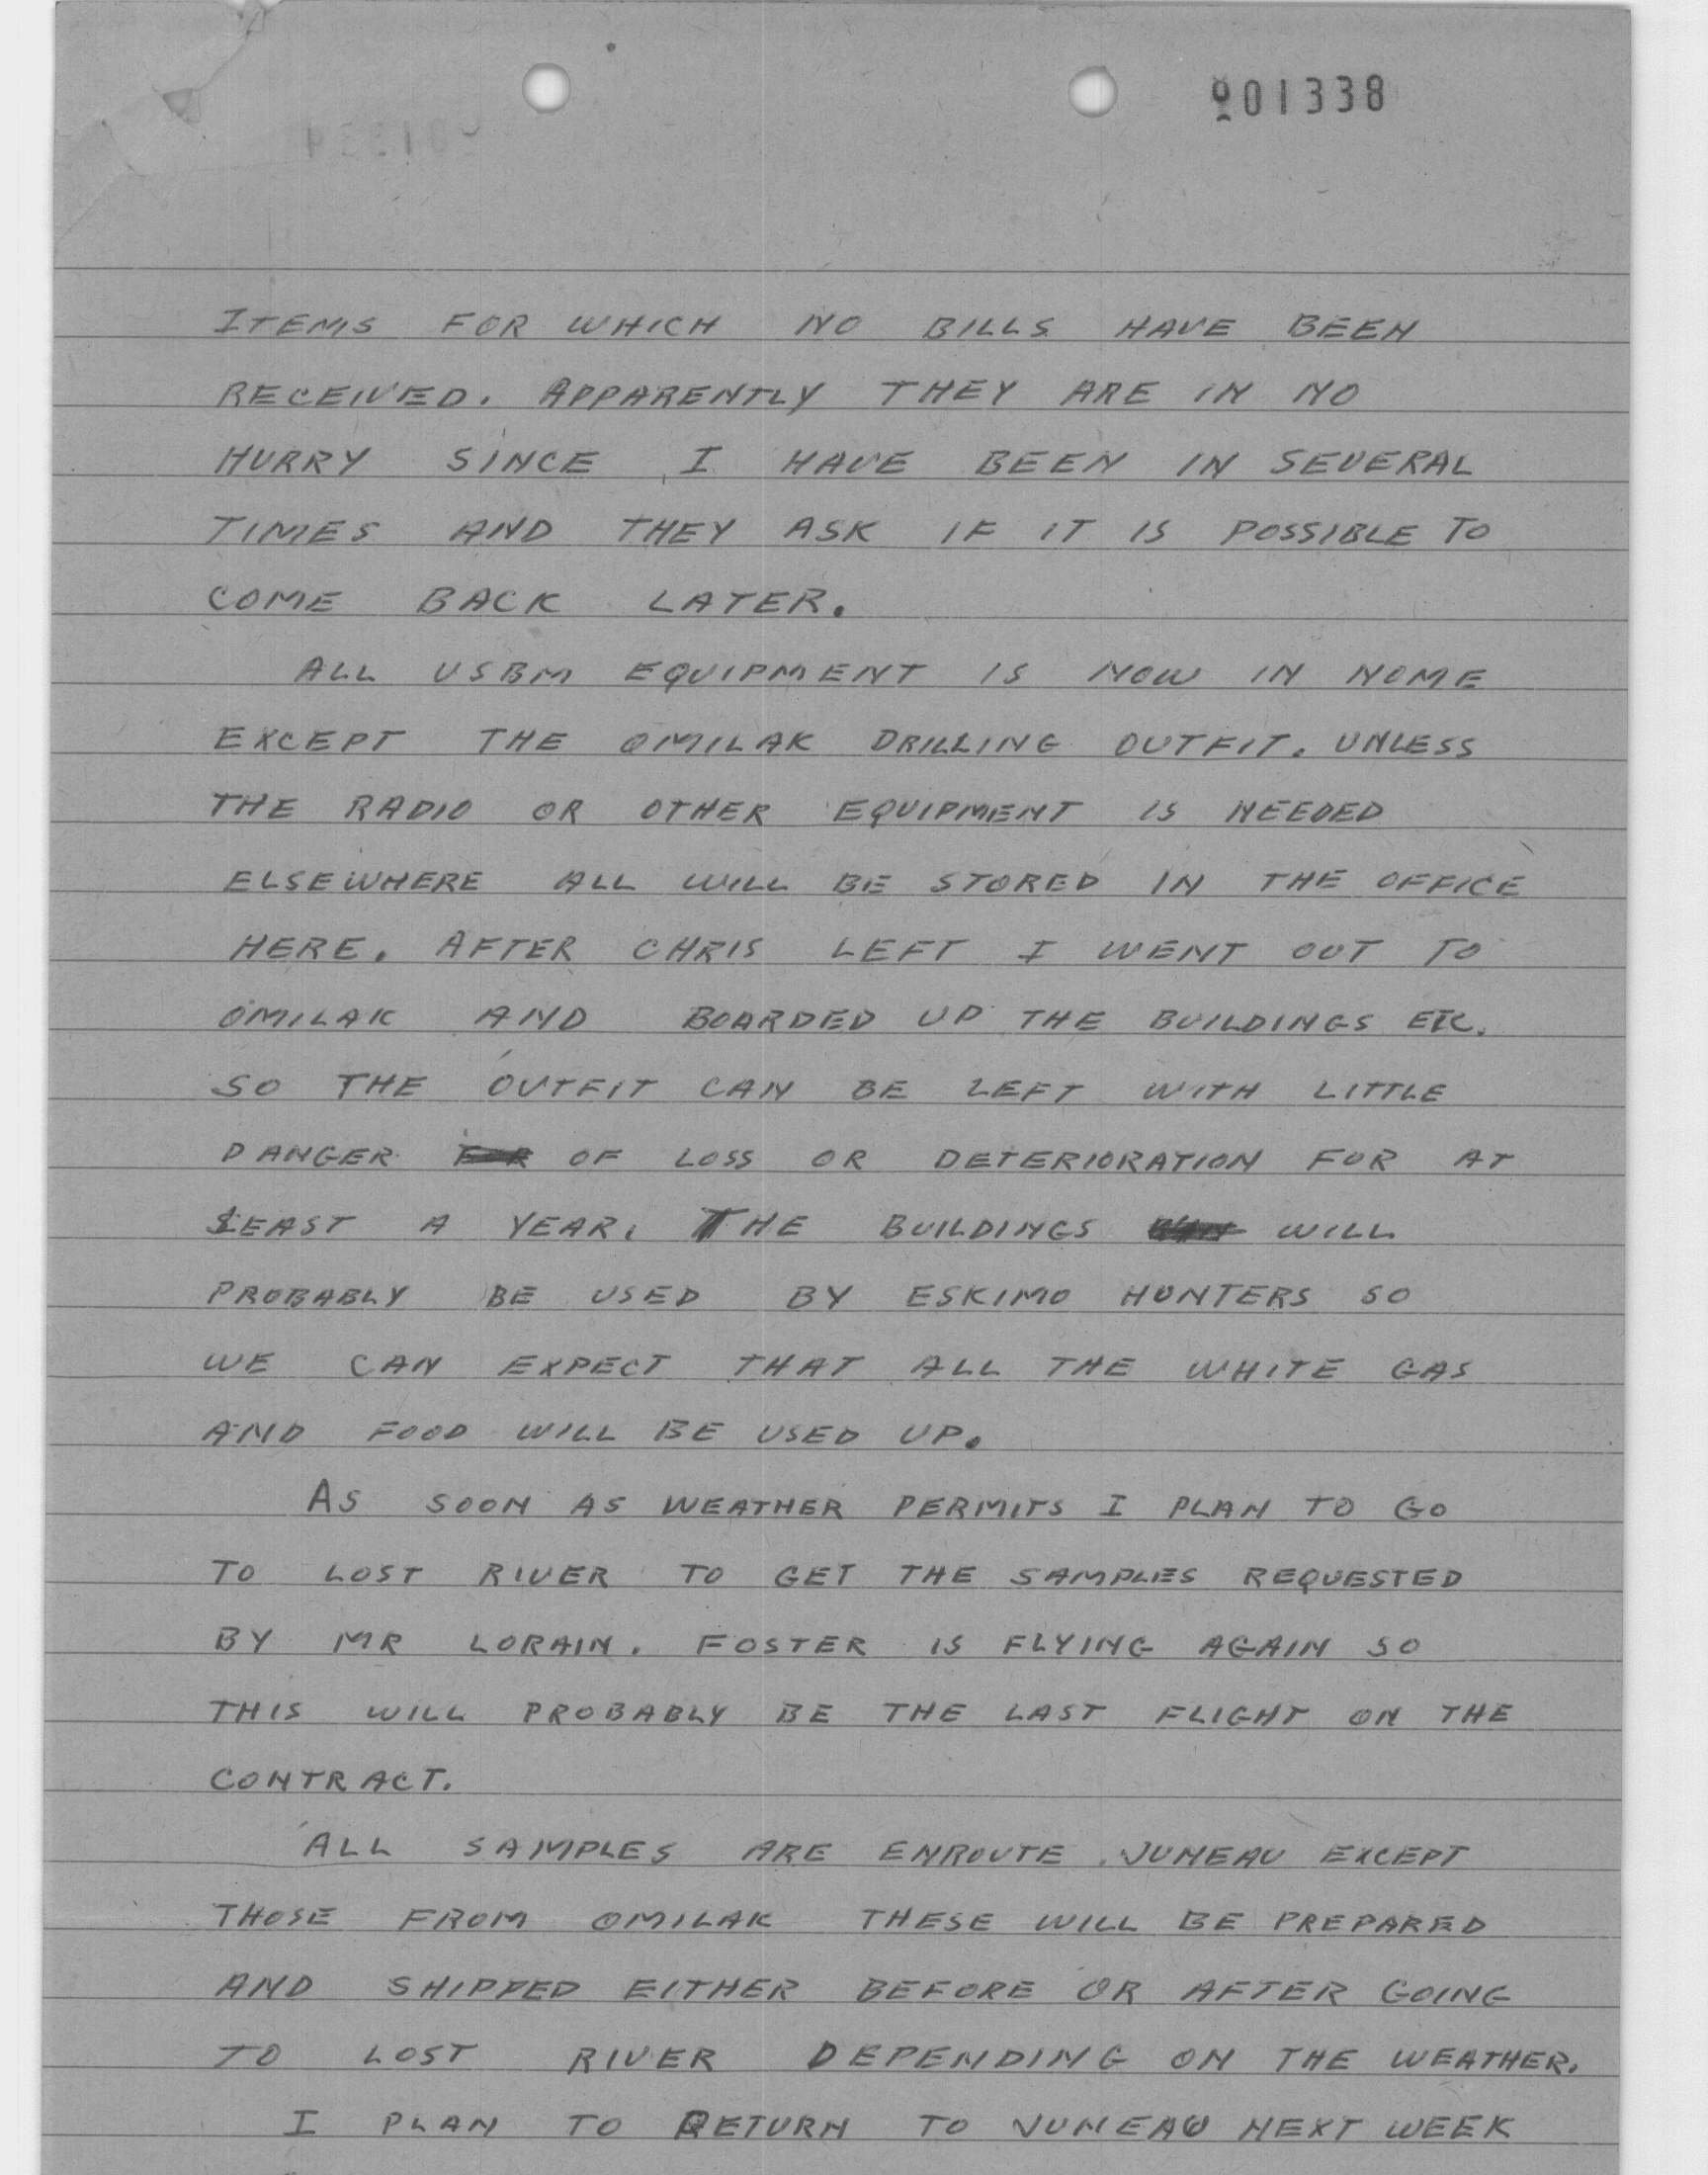 001338
ITEMS FOR WHICH NO BILLS HAVE BEEN
RECEIVED. APPARENTLY THEY ARE IN NO
HURRY SINCE I HAVE BEEN IN SEVERAL
TIMES AND THEY ASK IF IT IS POSSIBLE TO
COME BACK LATER.
ALL USBM EQUIPMENT IS NOW IN NOME
EXCEPT THE OMILAK DRILLING OUTFIT. UNLESS
THE RADIO OR OTHER EQUIPMENT IS NEEDED
ELSEWHERE ALL WILL BE STORED IN THE OFFICE
HERE. AFTER CHRIS LEFT I WENT OUT TO
OMILAK AND BOARDED UP THE BUILDINGS ETC.
SO THE OUTFIT CAN BE LEFT WITH LITTLE
DANGER OF LOSS OR DETERIORATION FOR AT
LEAST A YEAR. THE BUILDINGS WILL
PROBABLY BE USED BY ESKIMO HUNTERS SO
WE CAN EXPECT THAT ALL THE WHITE GAS
AND FOOD WILL BE USED UP.
AS SOON AS WEATHER PERMITS I PLAN TO GO
TO LOST RIVER TO GET THE SAMPLES REQUESTED
BY MR LORAIN. FOSTER IS FLYING AGAIN SO
THIS WILL PROBABLY BE THE LAST FLIGHT ON THE
CONTRACT.
ALL SAMPLES ARE ENROUTE JUNEAU EXCEPT
THOSE FROM OMILAK THESE WILL BE PREPARED
AND SHIPPED EITHER BEFORE OR AFTER GOING
TO LOST RIVER DEPENDING ON THE WEATHER.
I PLAN TO RETURN TO JUNEAU NEXT WEEK